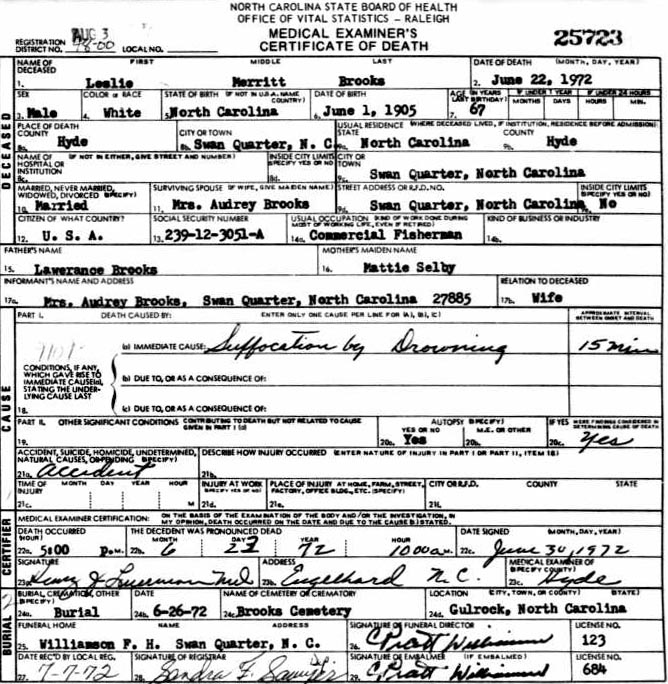 NORTH CAROLINA STATE BOARD OF HEALTH
OFFICE OF VITAL STATISTICS - RALEIGH
MEDICAL EXAMINER'S
CERTIFICATE OF DEATH
25723
AUG 3
REGISTRATION DISTRICT NO. 48-00 LOCAL NO.
NAME OF DECEASED FIRST MIDDLE LAST DATE OF DEATH (MONTH, DAY, YEAR)
1. Leslie Merritt Brooks 2. June 22, 1972
SEX COLOR OR RACE STATE OF BIRTH (IF NOT IN U.S.A. NAME COUNTRY) DATE OF BIRTH AGE (IN YEARS LAST BIRTHDAY) IF UNDER 1 YEAR IF UNDER 24 HOURS
MONTHS DAYS HOURS MIN.
3. Male 4. White 5. North Carolina 6. June 1, 1905 7. 67
PLACE OF DEATH COUNTY CITY OR TOWN USUAL RESIDENCE (WHERE DECEASED LIVED, IF INSTITUTION, RESIDENCE BEFORE ADMISSION) STATE COUNTY
8a. Hyde 8b. Swan Quarter, N. C. 9a. North Carolina 9b. Hyde
NAME OF HOSPITAL OR INSTITUTION (IF NOT IN EITHER, GIVE STREET AND NUMBER) INSIDE CITY LIMITS (SPECIFY YES OR NO) CITY OR TOWN
8c. 8d. 9c. Swan Quarter, North Carolina
MARRIED, NEVER MARRIED, WIDOWED, DIVORCED (SPECIFY) SURVIVING SPOUSE (IF WIFE, GIVE MAIDEN NAME) STREET ADDRESS OR R.F.D. NO. INSIDE CITY LIMITS (SPECIFY YES OR NO)
10. Married 11. Mrs. Audrey Brooks 9d. Swan Quarter, North Carolina 9e. No
CITIZEN OF WHAT COUNTRY? SOCIAL SECURITY NUMBER USUAL OCCUPATION (KIND OF WORK DONE DURING MOST OF WORKING LIFE, EVEN IF RETIRED) KIND OF BUSINESS OR INDUSTRY
12. U. S. A. 13. 239-12-3051-A 14a. Commercial Fisherman 14b.
FATHER'S NAME MOTHER'S MAIDEN NAME
15. Lawerance Brooks 16. Mattie Selby
INFORMANT'S NAME AND ADDRESS RELATION TO DECEASED
17a. Mrs. Audrey Brooks, Swan Quarter, North Carolina 27885 17b. Wife
PART I. DEATH CAUSED BY: ENTER ONLY ONE CAUSE PER LINE FOR (A), (B), (C) APPROXIMATE INTERVAL BETWEEN ONSET AND DEATH
(a) IMMEDIATE CAUSE: Suffocation by Drowning 15 min
CONDITIONS, IF ANY, WHICH GAVE RISE TO IMMEDIATE CAUSE(a), STATING THE UNDERLYING CAUSE LAST
(b) DUE TO, OR AS A CONSEQUENCE OF:
18. (c) DUE TO, OR AS A CONSEQUENCE OF:
PART II. OTHER SIGNIFICANT CONDITIONS CONTRIBUTING TO DEATH BUT NOT RELATED TO CAUSE GIVEN IN PART I (a) AUTOPSY (SPECIFY) YES OR NO M.E. OR OTHER IF YES WERE FINDINGS CONSIDERED IN DETERMINING CAUSE OF DEATH
19. 20a. Yes 20b. 20c. Yes
ACCIDENT, SUICIDE, HOMICIDE, UNDETERMINED, NATURAL CAUSES, OR PENDING (SPECIFY) DESCRIBE HOW INJURY OCCURRED (ENTER NATURE OF INJURY IN PART I OR PART II, ITEM 18)
21a. Accident 21b.
TIME OF INJURY MONTH DAY YEAR HOUR INJURY AT WORK (SPECIFY YES OR NO) PLACE OF INJURY AT HOME, FARM, STREET, FACTORY, OFFICE BLDG., ETC. (SPECIFY) CITY OR R.F.D. COUNTY STATE
21c. M 21d. 21e. 21f.
MEDICAL EXAMINER CERTIFICATION: ON THE BASIS OF THE EXAMINATION OF THE BODY AND/OR THE INVESTIGATION, IN MY OPINION, DEATH OCCURRED ON THE DATE AND DUE TO THE CAUSE(S) STATED.
DEATH OCCURRED (HOUR) THE DECEDENT WAS PRONOUNCED DEAD MONTH DAY YEAR HOUR DATE SIGNED (MONTH, DAY, YEAR)
22a. 5:00 P.M. 22b. 6 22 72 10:00 a.M. 22c. June 30, 1972
SIGNATURE ADDRESS MEDICAL EXAMINER OF (SPECIFY)
23a. 23b. Engelhard N.C. 23c. Hyde
BURIAL, CREMATION, OTHER (SPECIFY) DATE NAME OF CEMETERY OR CREMATORY LOCATION (CITY, TOWN, OR COUNTY) (STATE)
24a. Burial 24b. 6-26-72 24c. Brooks Cemetery 24d. Gulrock, North Carolina
FUNERAL HOME NAME ADDRESS SIGNATURE OF FUNERAL DIRECTOR LICENSE NO.
25. Williamson F. H. Swan Quarter, N. C. 26. C Pratt Williamson 123
DATE REC'D BY LOCAL REG. SIGNATURE OF REGISTRAR SIGNATURE OF EMBALMER (IF EMBALMED) LICENSE NO.
27. 7-7-72 28. Sandra F. 29. C. Pratt Williamson 684
DECEASED
CAUSE
CERTIFIER
BURIAL